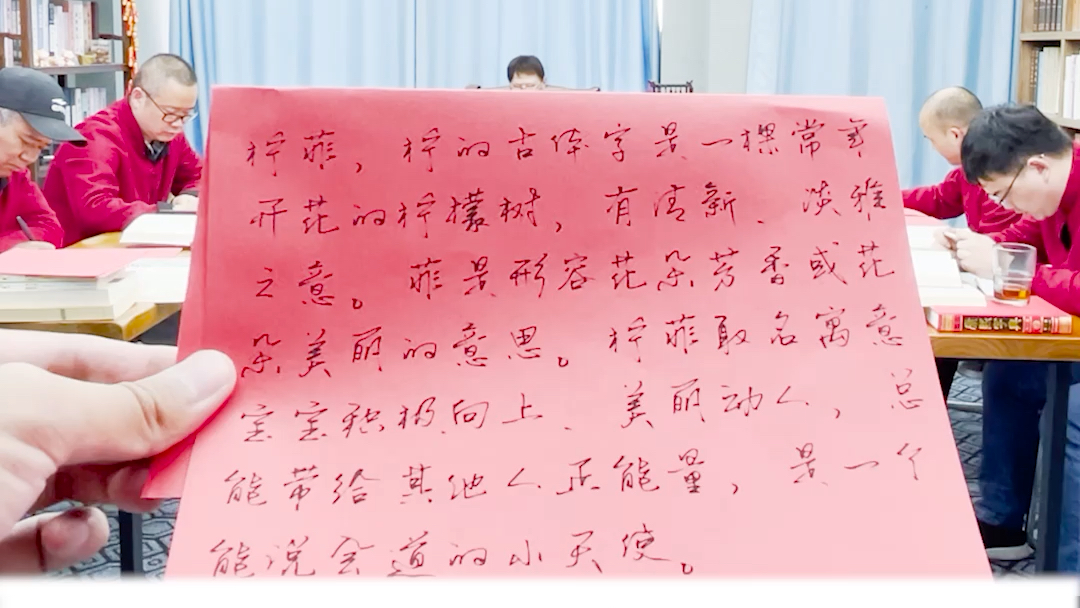 柠菲，柠的古体字是一棵常年
开花的柠檬树，有清新、淡雅
之意。菲是形容花朵芳香或花
朵美丽的意思。柠菲取名寓意
宝宝积极向上、美丽动人，总
能带给其他人正能量，是一个
能说会道的小天使。